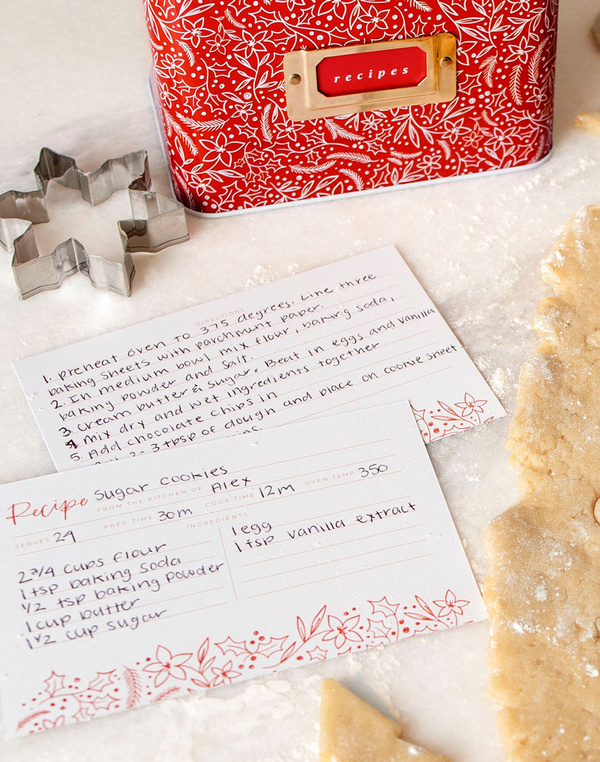 recipes
DIRECTIONS
1. preheat oven to 375 degrees. Line three
baking sheets with parchment paper.
2. In medium bowl mix flour, baking soda,
baking powder and salt.
3 cream butter & sugar. Beat in eggs and vanilla
4 mix dry and wet ingredients together
5 Add chocolate chips in
2-3 tbsp of dough and place on cookie sheet
Recipe Sugar cookies
FROM THE KITCHEN OF Alex
SERVES 24 PREP TIME 30m COOK TIME 12m OVEN TEMP 350
INGREDIENTS
2 3/4 cups flour
1 tsp baking soda
1/2 tsp baking powder
1 cup butter
1 1/2 cup sugar
1 egg
1 tsp vanilla extract